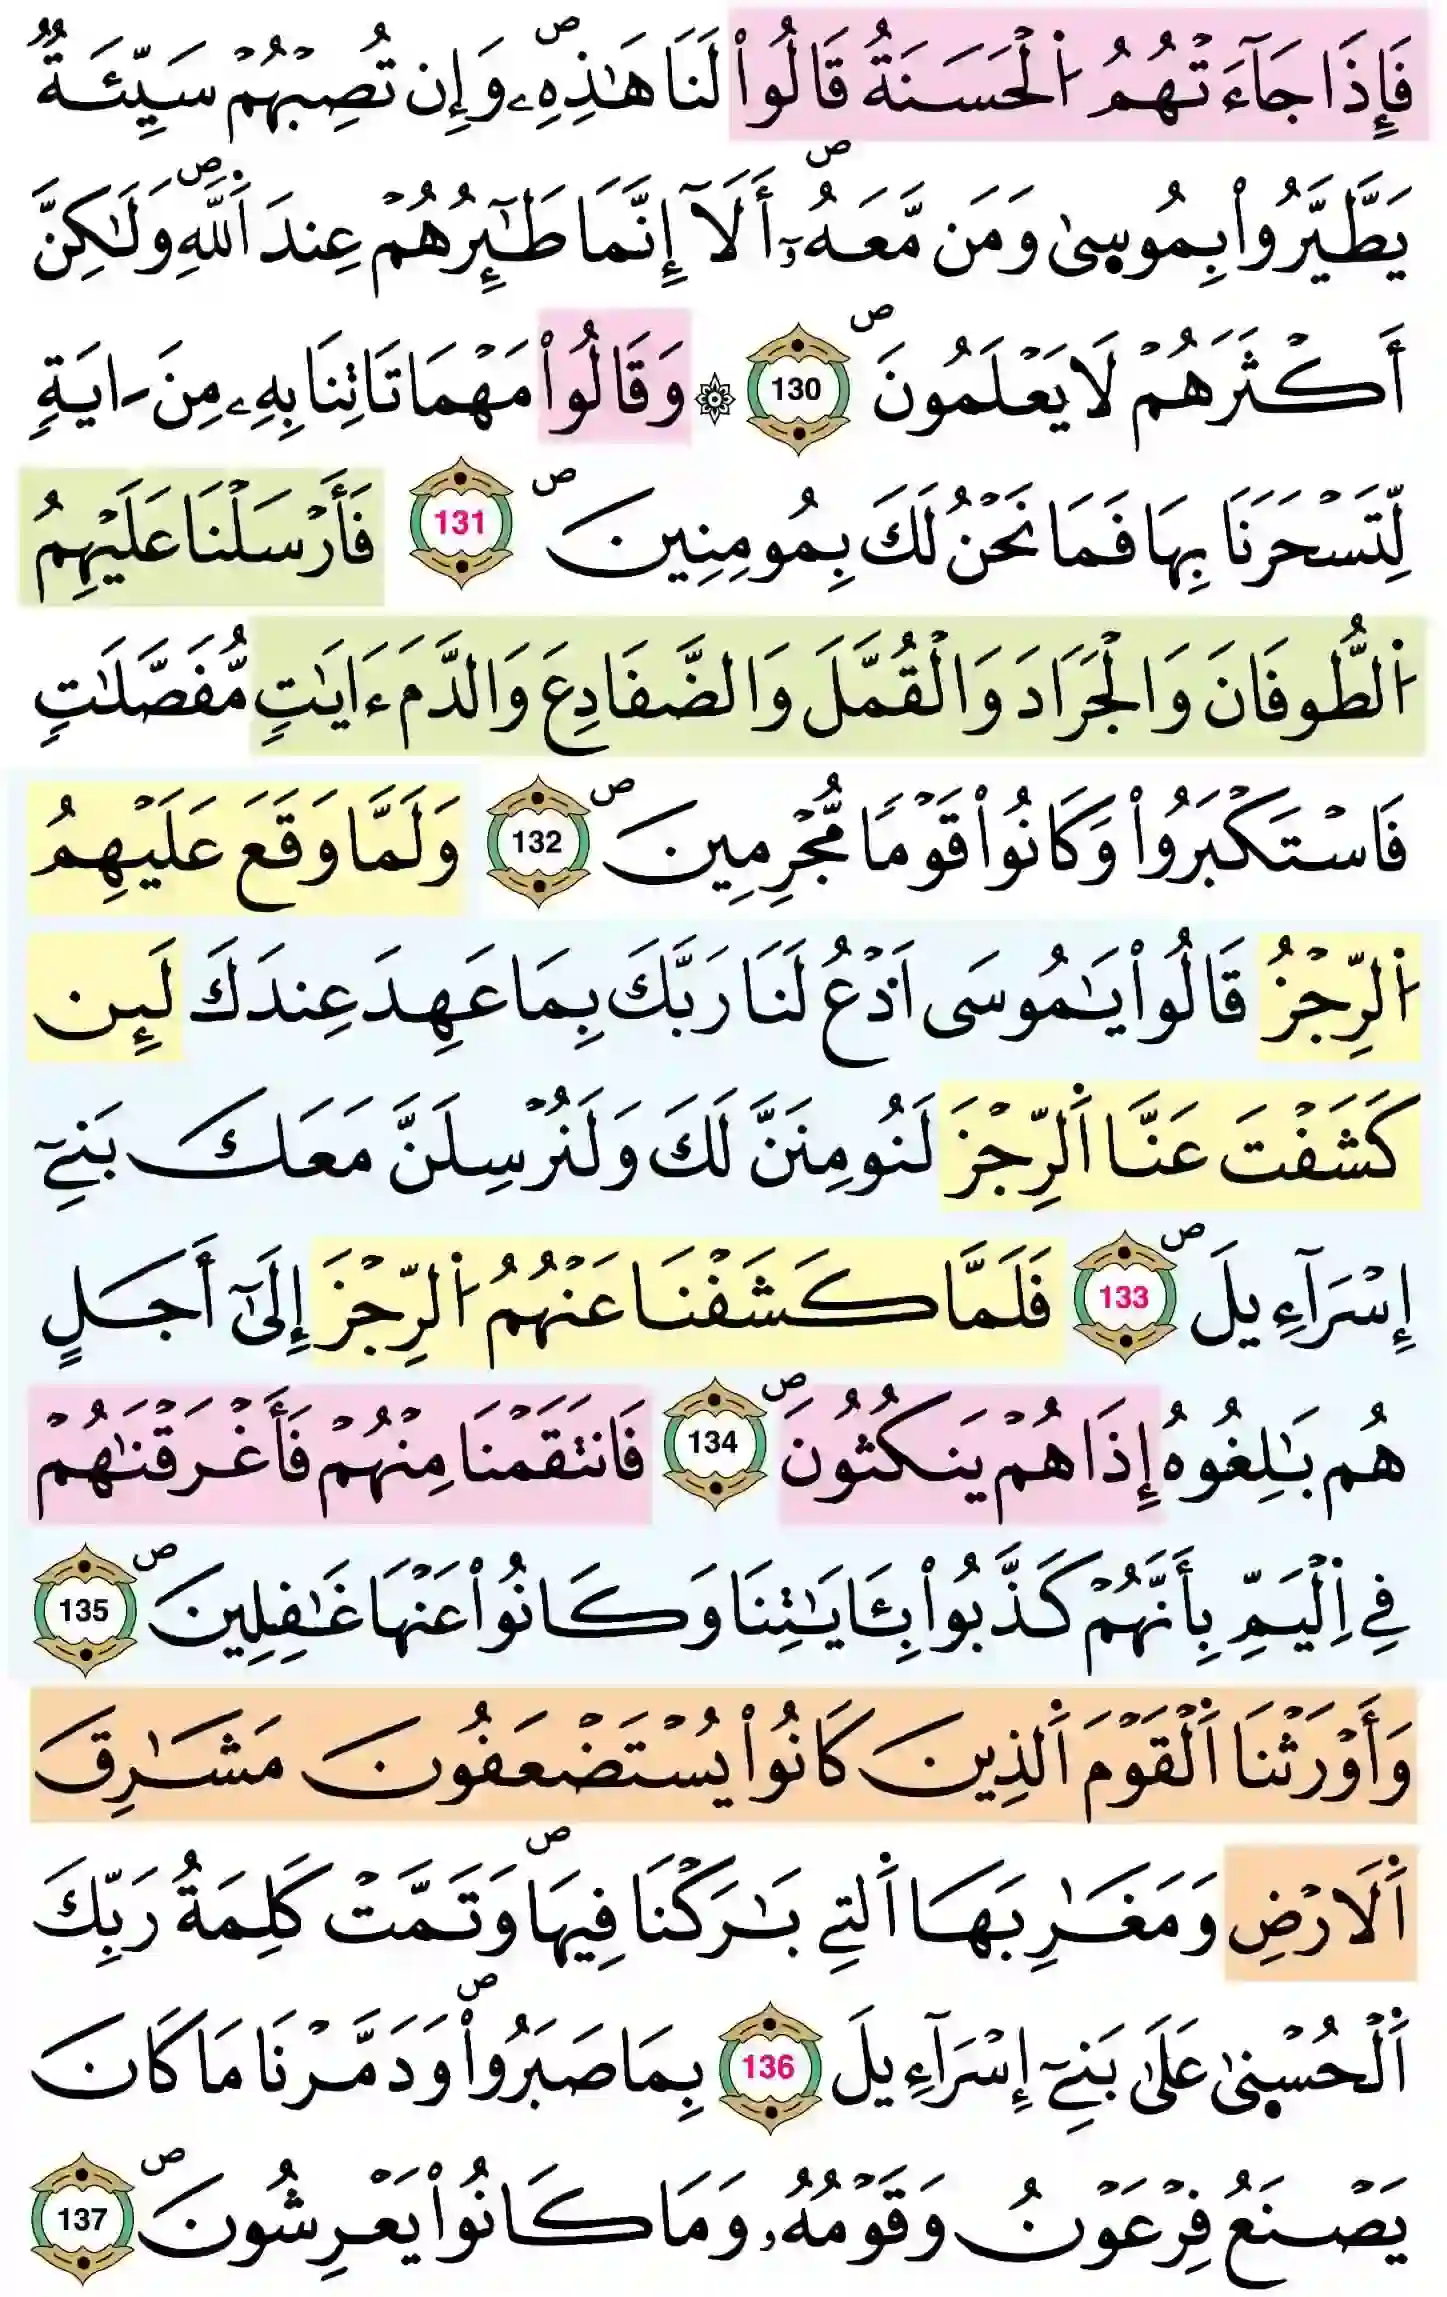 فَإِذَا جَآءَتْهُمُ اُ۬لْحَسَنَةُ قَالُواْ لَنَا هَٰذِهِۦۖ وَإِن تُصِبْهُمْ سَيِّئَةٞ
يَطَّيَّرُواْ بِمُوس۪ىٰ وَمَن مَّعَهُۥٓۖ أَلَآ إِنَّمَا طَٰٓئِرُهُمْ عِندَ اَ۬للَّهِۖ وَلَٰكِنَّ
أَكْثَرَهُمْ لَا يَعْلَمُونَۖ 130 ۞ وَقَالُواْ مَهْمَا تَاتِنَا بِهِۦ مِنَ ـايَةٖ
لِّتَسْحَرَنَا بِهَا فَمَا نَحْنُ لَكَ بِمُومِنِينَۖ 131 فَأَرْسَلْنَا عَلَيْهِمُ
اُ۬لطُّوفَانَ وَالْجَرَادَ وَالْقُمَّلَ وَالضَّفَادِعَ وَالدَّمَ ءَايَٰتٖ مُّفَصَّلَٰتٖ
فَاسْتَكْبَرُواْ وَكَانُواْ قَوْماٗ مُّجْرِمِينَۖ 132 وَلَمَّا وَقَعَ عَلَيْهِمُ
اُ۬لرِّجْزُ قَالُواْ يَٰمُوسَى اَدْعُ لَنَا رَبَّكَ بِمَا عَهِدَ عِندَكَ لَئِن
كَشَفْتَ عَنَّا اَ۬لرِّجْزَ لَنُومِنَنَّ لَكَ وَلَنُرْسِلَنَّ مَعَكَ بَنِےٓ
إِسْرَآءِيلَۖ 133 فَلَمَّا كَشَفْنَا عَنْهُمُ اُ۬لرِّجْزَ إِلَىٰٓ أَجَلٍ
هُم بَٰلِغُوهُ إِذَا هُمْ يَنكُثُونَۖ 134 فَانتَقَمْنَا مِنْهُمْ فَأَغْرَقْنَٰهُمْ
فِے اِ۬لْيَمِّ بِأَنَّهُمْ كَذَّبُواْ بِـَٔايَٰتِنَا وَكَانُواْ عَنْهَا غَٰفِلِينَۖ 135
وَأَوْرَثْنَا اَ۬لْقَوْمَ اَ۬لذِينَ كَانُواْ يُسْتَضْعَفُونَ مَشَٰرِقَ
اَ۬لَارْضِ وَمَغَٰرِبَهَا اَ۬لتِے بَٰرَكْنَا فِيهَاۖ وَتَمَّتْ كَلِمَةُ رَبِّكَ
اَ۬لْحُسْن۪ىٰ عَلَىٰ بَنِےٓ إِسْرَآءِيلَ 136 بِمَا صَبَرُواْۖ وَدَمَّرْنَا مَا كَانَ
يَصْنَعُ فِرْعَوْنُ وَقَوْمُهُۥ وَمَا كَانُواْ يَعْرِشُونَۖ 137